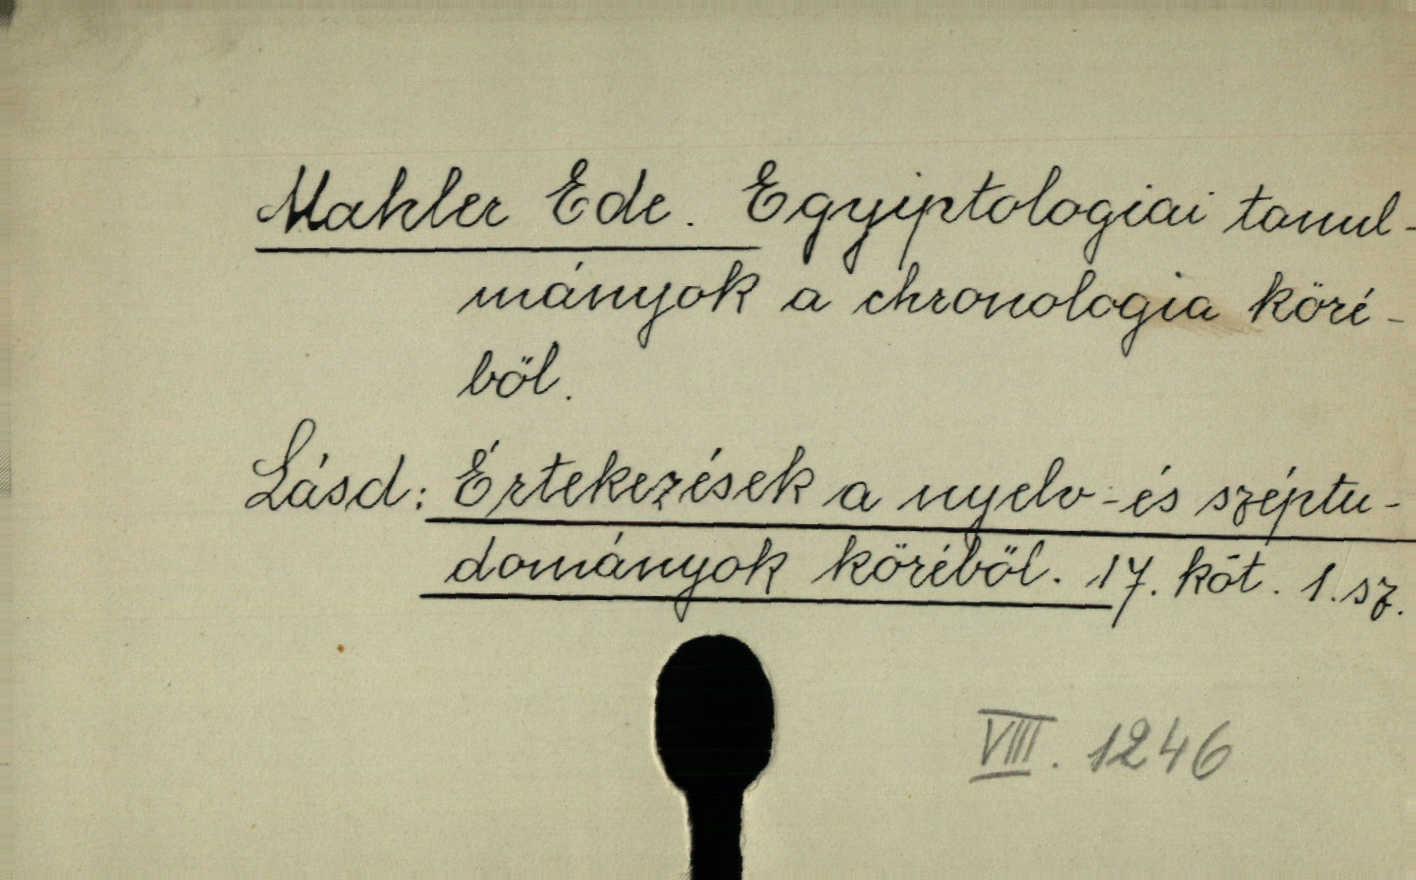 Mahler Ede. Egyiptologiai tanul-
mányok a chronologia köré-
ből.
Lásd: Értekezések a nyelv-és széptu-
dományok köréből. 17. köt. 1.sz.
VIII. 1246